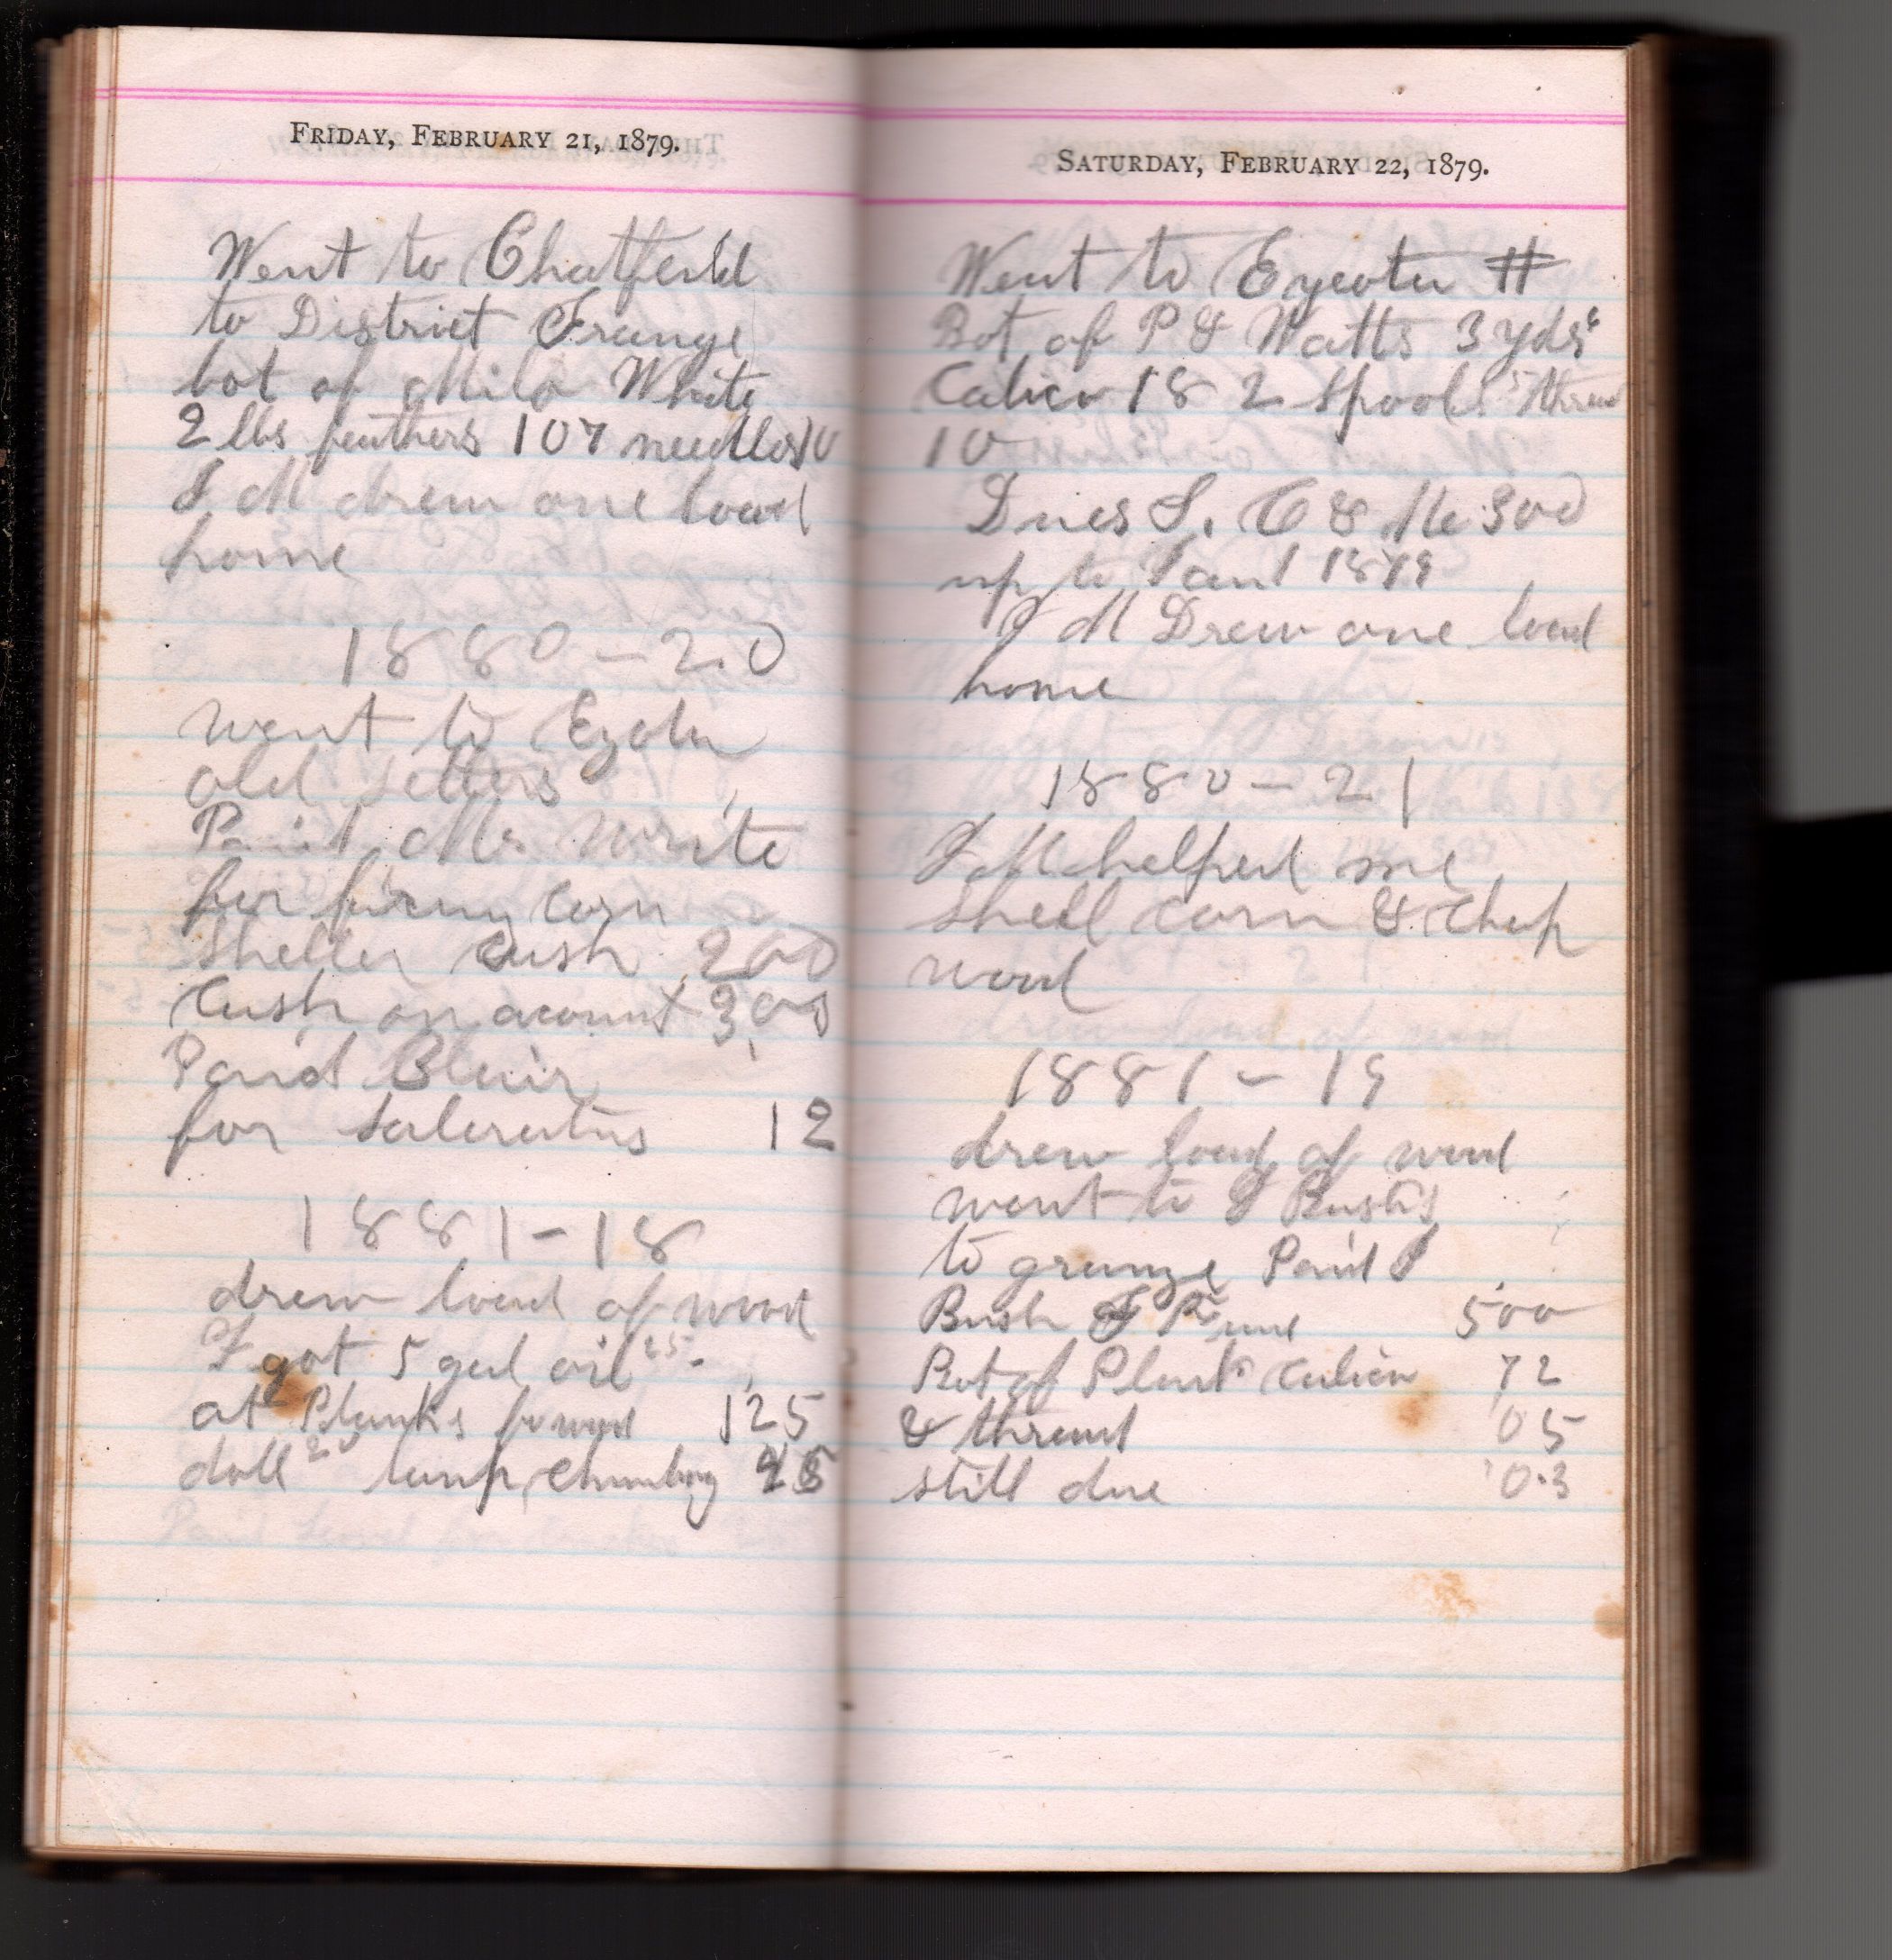 FRIDAY, FEBRUARY 21, 1879.
Went to Chatfeild
to District Grange
bot of Milo White
2 lbs feathers 107 needles 10
J M drew one load
home
1880 – 20
went to Eyota
old setters
Paid Mr
for fixing corn
sheller cash 200
Cash on acount 3,00
Paid Blair
for Saleratus 12
1881 – 18
drew load of wood
I got 5 gal oil 25
at Planks 125
doll 20 lamp Chimbny
SATURDAY, FEBRUARY 22, 1879.
Went to Eyota #
Bot of P & Watts 3 yds
Calico 18 2 Spools thread
10
Dues S. C & 300
up to Jan 1 1879
J M Drew one load
home
1880 – 21
J M helped me
shell corn & chop
wood
1881 – 19
drew load of wood
went to J Bush's
to grange Paid J
Bush 500
Bot of Plank Calico 72
& thread 05
still due 03